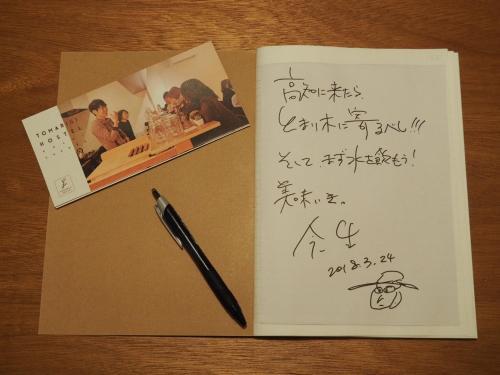 TOMARIGI
HOSTEL
高知に来たら
とまり木に寄るべし!!!
そして、まず水を飲もう!
美味いき。
余生
2018.3.24